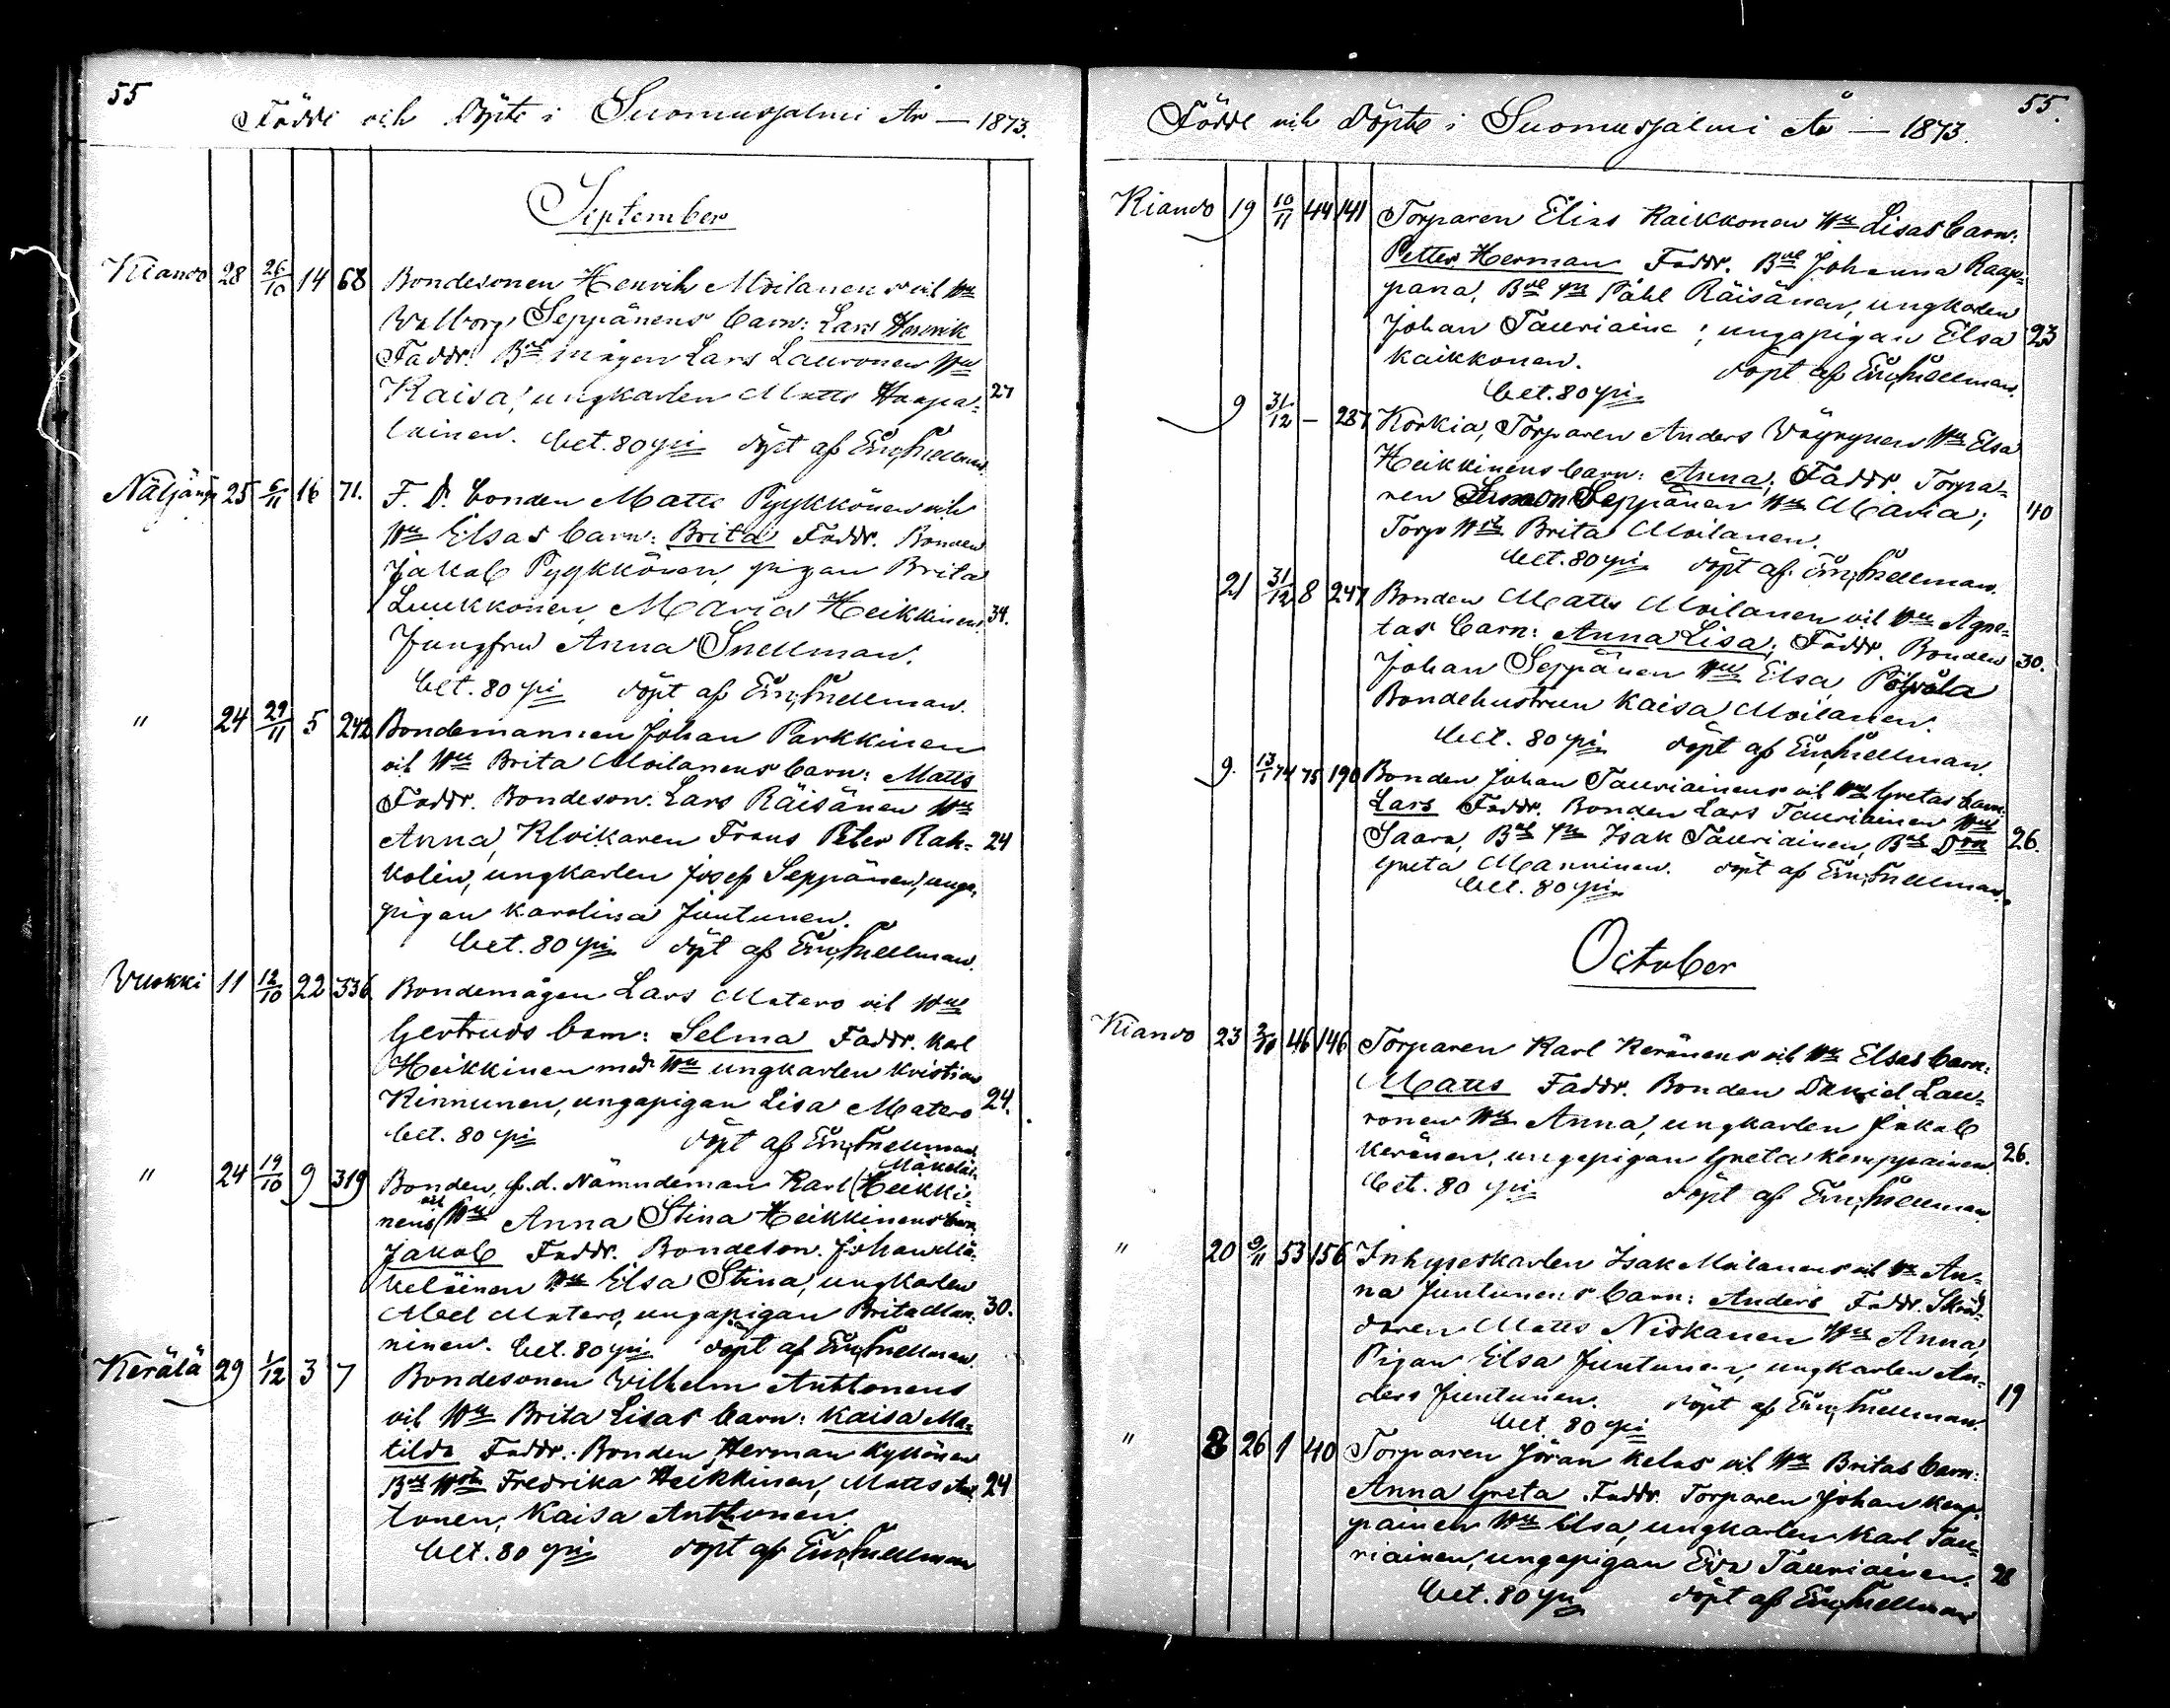 55
Födde och Döpte i Suomussalmi År — 1873.
September
Kiando 28 26/10 14 68 Bondesonen Henrik Moilanens och Hu
Walborg Seppänens barn: Lars Henrik
Faddr. Bde mågen Lars Lauronen Hu
Kaisa, ungkarlen Matts Haapa= 27
lainen. bet. 80 pi döpt af Em, Snellman.
Näljängä 25 6/11 16 71. F. D. bonden Matts Pyykkönen och
Hu Elsas barn: Brita Faddr. Bonden
Jakob Pyykkönen, pigan Brita
Luukkonen, Maria Heikkinen, 34.
Jungfru Anna Snellman.
bet. 80 pi döpt af Em, Snellman.
" 24 29/11 5 242 Bondemannen Johan Parkkinen
och Hu Brita Moilanens barn: Matts
Faddr. Bondeson. Lars Räisänen Hu
Anna, Klockaren Frans Peter Rah= 24
kolin, ungkarlen Josef Seppänen, unga
pigan Karolina Juntunen.
bet. 80 pi döpt af Em, Snellman.
Vuokki 11 12/10 22 336 Bondemågen Lars Matero och Hu
Gertruds barn: Selma Faddr. Karl
Heikkinen med Hu ungkarlen Kristian
Kinnunen, ungapigan Lisa Matero 24.
bet. 80 pi döpt af Em, Snellman
" 24 19/10 9 319 Bonden, f.d. Nämndeman Karl (Mäkeläin Heikki=
nens) och Hu Anna Stina Heikkinens barn
Jakob Faddr. Bondeson. Johan Mä=
keläinen Hu Elsa Stina, ungkarlen
Abel Matero, ungapigan Brita Man= 30.
ninen. bet. 80 pi döpt af Em, Snellman.
Kerälä 29 1/12 3 7 Bondesonen Wilhelm Anttonens
och Hu Brita Lisas barn: Kaisa Ma=
tilda Faddr. Bonden Herman Kyllönen
Bde Hu Fredrika Heikkinen, Matts An= 24
tonen, Kaisa Anttonen.
bet. 80 pi döpt af Em, Snellman
55.
Födde och Döpte i Suomussalmi År — 1873.
Kiando 19 10/11 44 141 Torparen Elias Kaikkonen Hu Lisas barn:
Petter Herman Faddr. Bde Johanna Raap=
pana, Bde Pähl Räisänen, ungkarlen
Johan Tauriaine, ungapigan Elsa 23
Kaikkonen. döpt af Em, Snellman.
bet. 80 pi
9 31/12 — 237 Korkia, Torparen Anders Väyrynen Hu Elsa
Heikkinens barn: Anna; Faddr. Torpa=
ren Simon Seppänen Hu Maria; 40
Torp Hu Brita Moilanen.
bet. 80 pi döpt af Em, Snellman.
21 31/12 8 247 Bonden Matts Moilanen och Hu Agne=
tas barn: Anna Lisa; Faddr. Bonden 30.
Johan Seppänen Hu Elsa,
Bondehustrun Kaisa Moilanen.
bet. 80 pi döpt af Em, Snellman.
9. 13/1 74 75 190 Bonden Johan Tauriainens och Hu Gretas barn:
Lars Faddr. Bonden Lars Tauriainen Hu
Saara, Bde Isak Tauriainen, Bde Dra 26.
Greta Manninen. döpt af Em, Snellman.
bet. 80 pi
October
Kiando 23 2/10 46 146 Torparen Karl Keränens och Hu Elsas barn:
Matts Faddr. Bonden David Lau=
ronen Hu Anna, ungkarlen Jakob
Keränen, ungapigan Greta Kemppainen. 26.
bet. 80 pi döpt af Em, Snellman.
" 20 9/11 53 156 Inhyseskarlen Isak Moilanens och Hu An=
na Juntunens barn: Anders Faddr. Skräd=
daren Matts Niskanen Hu Anna,
Pigan Elsa Juntunen, ungkarlen An=
ders Juntunen. döpt af Em, Snellman. 19
bet. 80 pi
" 8 26 1 40 Torparen Jöran Kelas och Hu Britas barn:
Anna Greta Faddr. Torparen Johan Kemp=
painen Hu Elsa, ungkarlen Karl Tau=
riainen, ungapigan Eva Tauriainen. 28
bet. 80 pi döpt af Em, Snellman